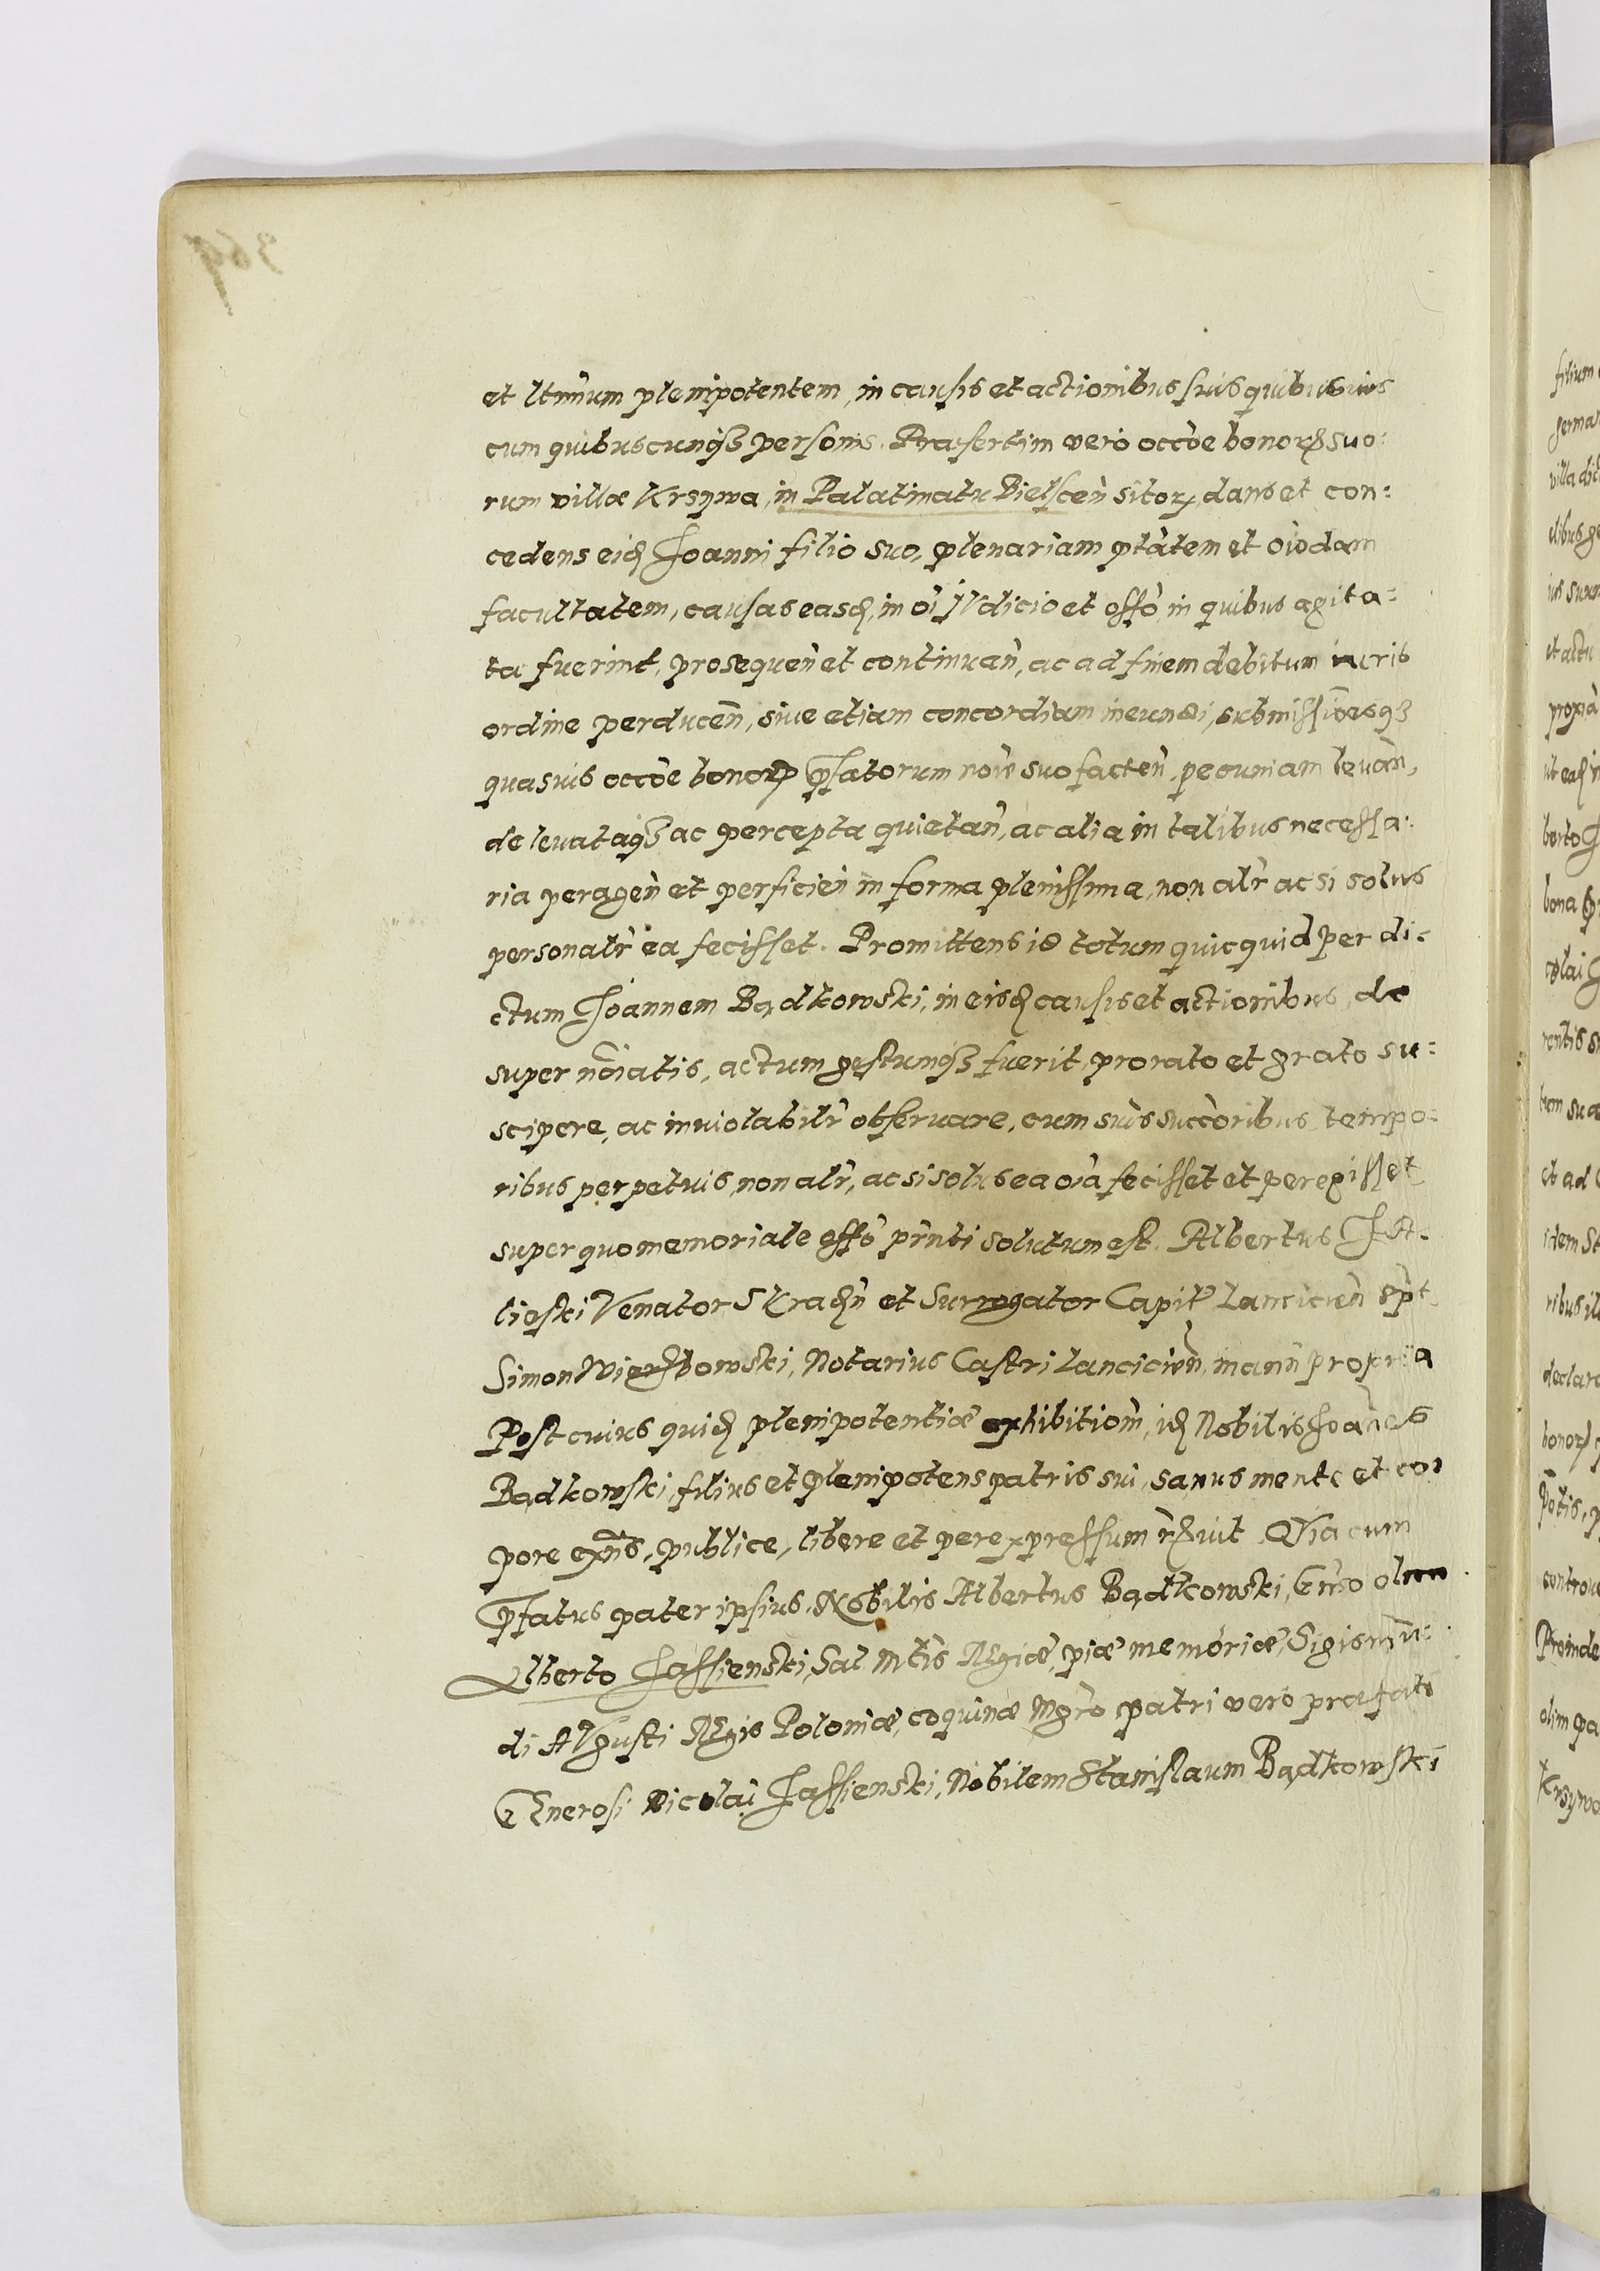 et ltmum plenipotentem, in causis et actionibus suis quibusvis
cum quibuscunqȝ personis. Præsertim vero occõe bonorꝝ suo-
rum villæ Krzywa, in Palatinatu Bielscen̄ sitorꝝ, dans et con-
cedens eid Joanni filio suo, plenariam ptatem et oiodam
facultatem, causas easd, in oi Judicio et offo, in quibus agita-
ta fuerint, prosequen̄ et continuan̄, ac ad finem debitum iuris
ordine perducen̄, sive etiam concordiam ineundi, submissioesqȝ
quasvis occõe bonorꝝ pfatorum noie suo facten̄, pecuniam levan̄,
de levataqȝ ac percepta quietan̄, ac alia in talibus necessa-
ria peragen̄ et perficien̄ in forma plenissima, non alr ac si solus
personalr ea fecisset. Promittens is totum quicquid per di-
ctum Joannem Bądkowski, in eisd causis et actionibus, de
super noiatis, actum gestumqȝ fuerit, pro rato et grato su-
scipere, ac inviolabilr observare, cum suis succoribus, tempo-
ribus perpetuis, non alr, ac si solus ea oia fecisset et peregisset
super quo memoriale offo prnti solutum est. Albertus
Venator Siradn̄ et Surrogator Capit Lancicien̄ spt.
Simon Wierzbowski, Notarius Castri Lancicien̄, manu propria
Post cuius quid plenipotentiæ exhibitiom̄, id Nobilis Joanes
Bądkowski, filius et plenipotens patris sui, sanus mente et cor
pore exns, publice, libere et per expressum rcvit. Quia cum
pfatus pater ipsius, Nobilis Albertus Bądkowski, Gnso olim
Alberto Jassienski, Sac. Mtis Regiæ, piæ memoriæ, Sigismu-
di Augusti Regis Poloniæ, coquinæ Mgro patri vero præfati
Generosi Nicolai Jassienski, Nobilem Stanislaum Bądkowski